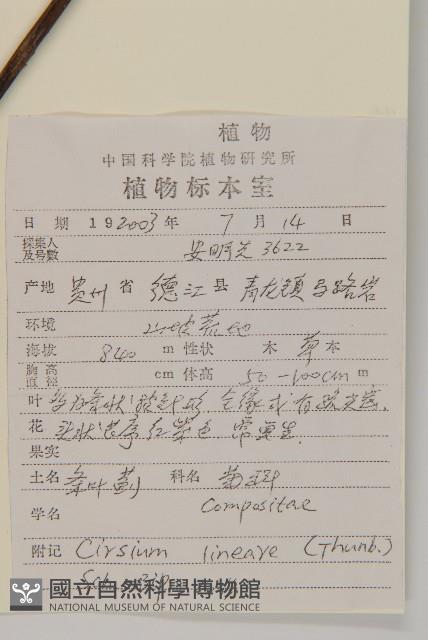 植物
中国科学院植物研究所
植物标本室
日期 19 2003 年 7 月 14 日
採集人及号數 安明先 3622
产地 贵州 省 德江 县 青龙镇马路岩
环境 山坡荒地
海拔 840 m 性状 木 草 本
胸高直径 cm 体高 50-100cm m
叶 披针形 全缘或有
花 头状花序红紫色
果实
土名 条叶蓟 科名 菊科
学名 Compositae
附记 Cirsium lineare (Thunb.)
國立自然科學博物館
NATIONAL MUSEUM OF NATURAL SCIENCE